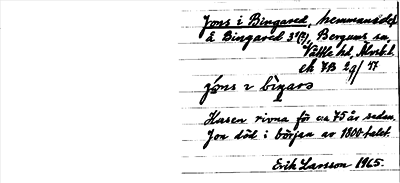 Jons i Bingared, hemmansdel
å Bingared 3¹⁽²⁾, Bergum sn,
Vättle hd, Älvsb. l.
ek 7B 2g/47
jóns ɩ bìŋarə
Husen rivna för ca 75 år sedan.
Jon död i början av 1800-talet.
Erik Larsson 1965.